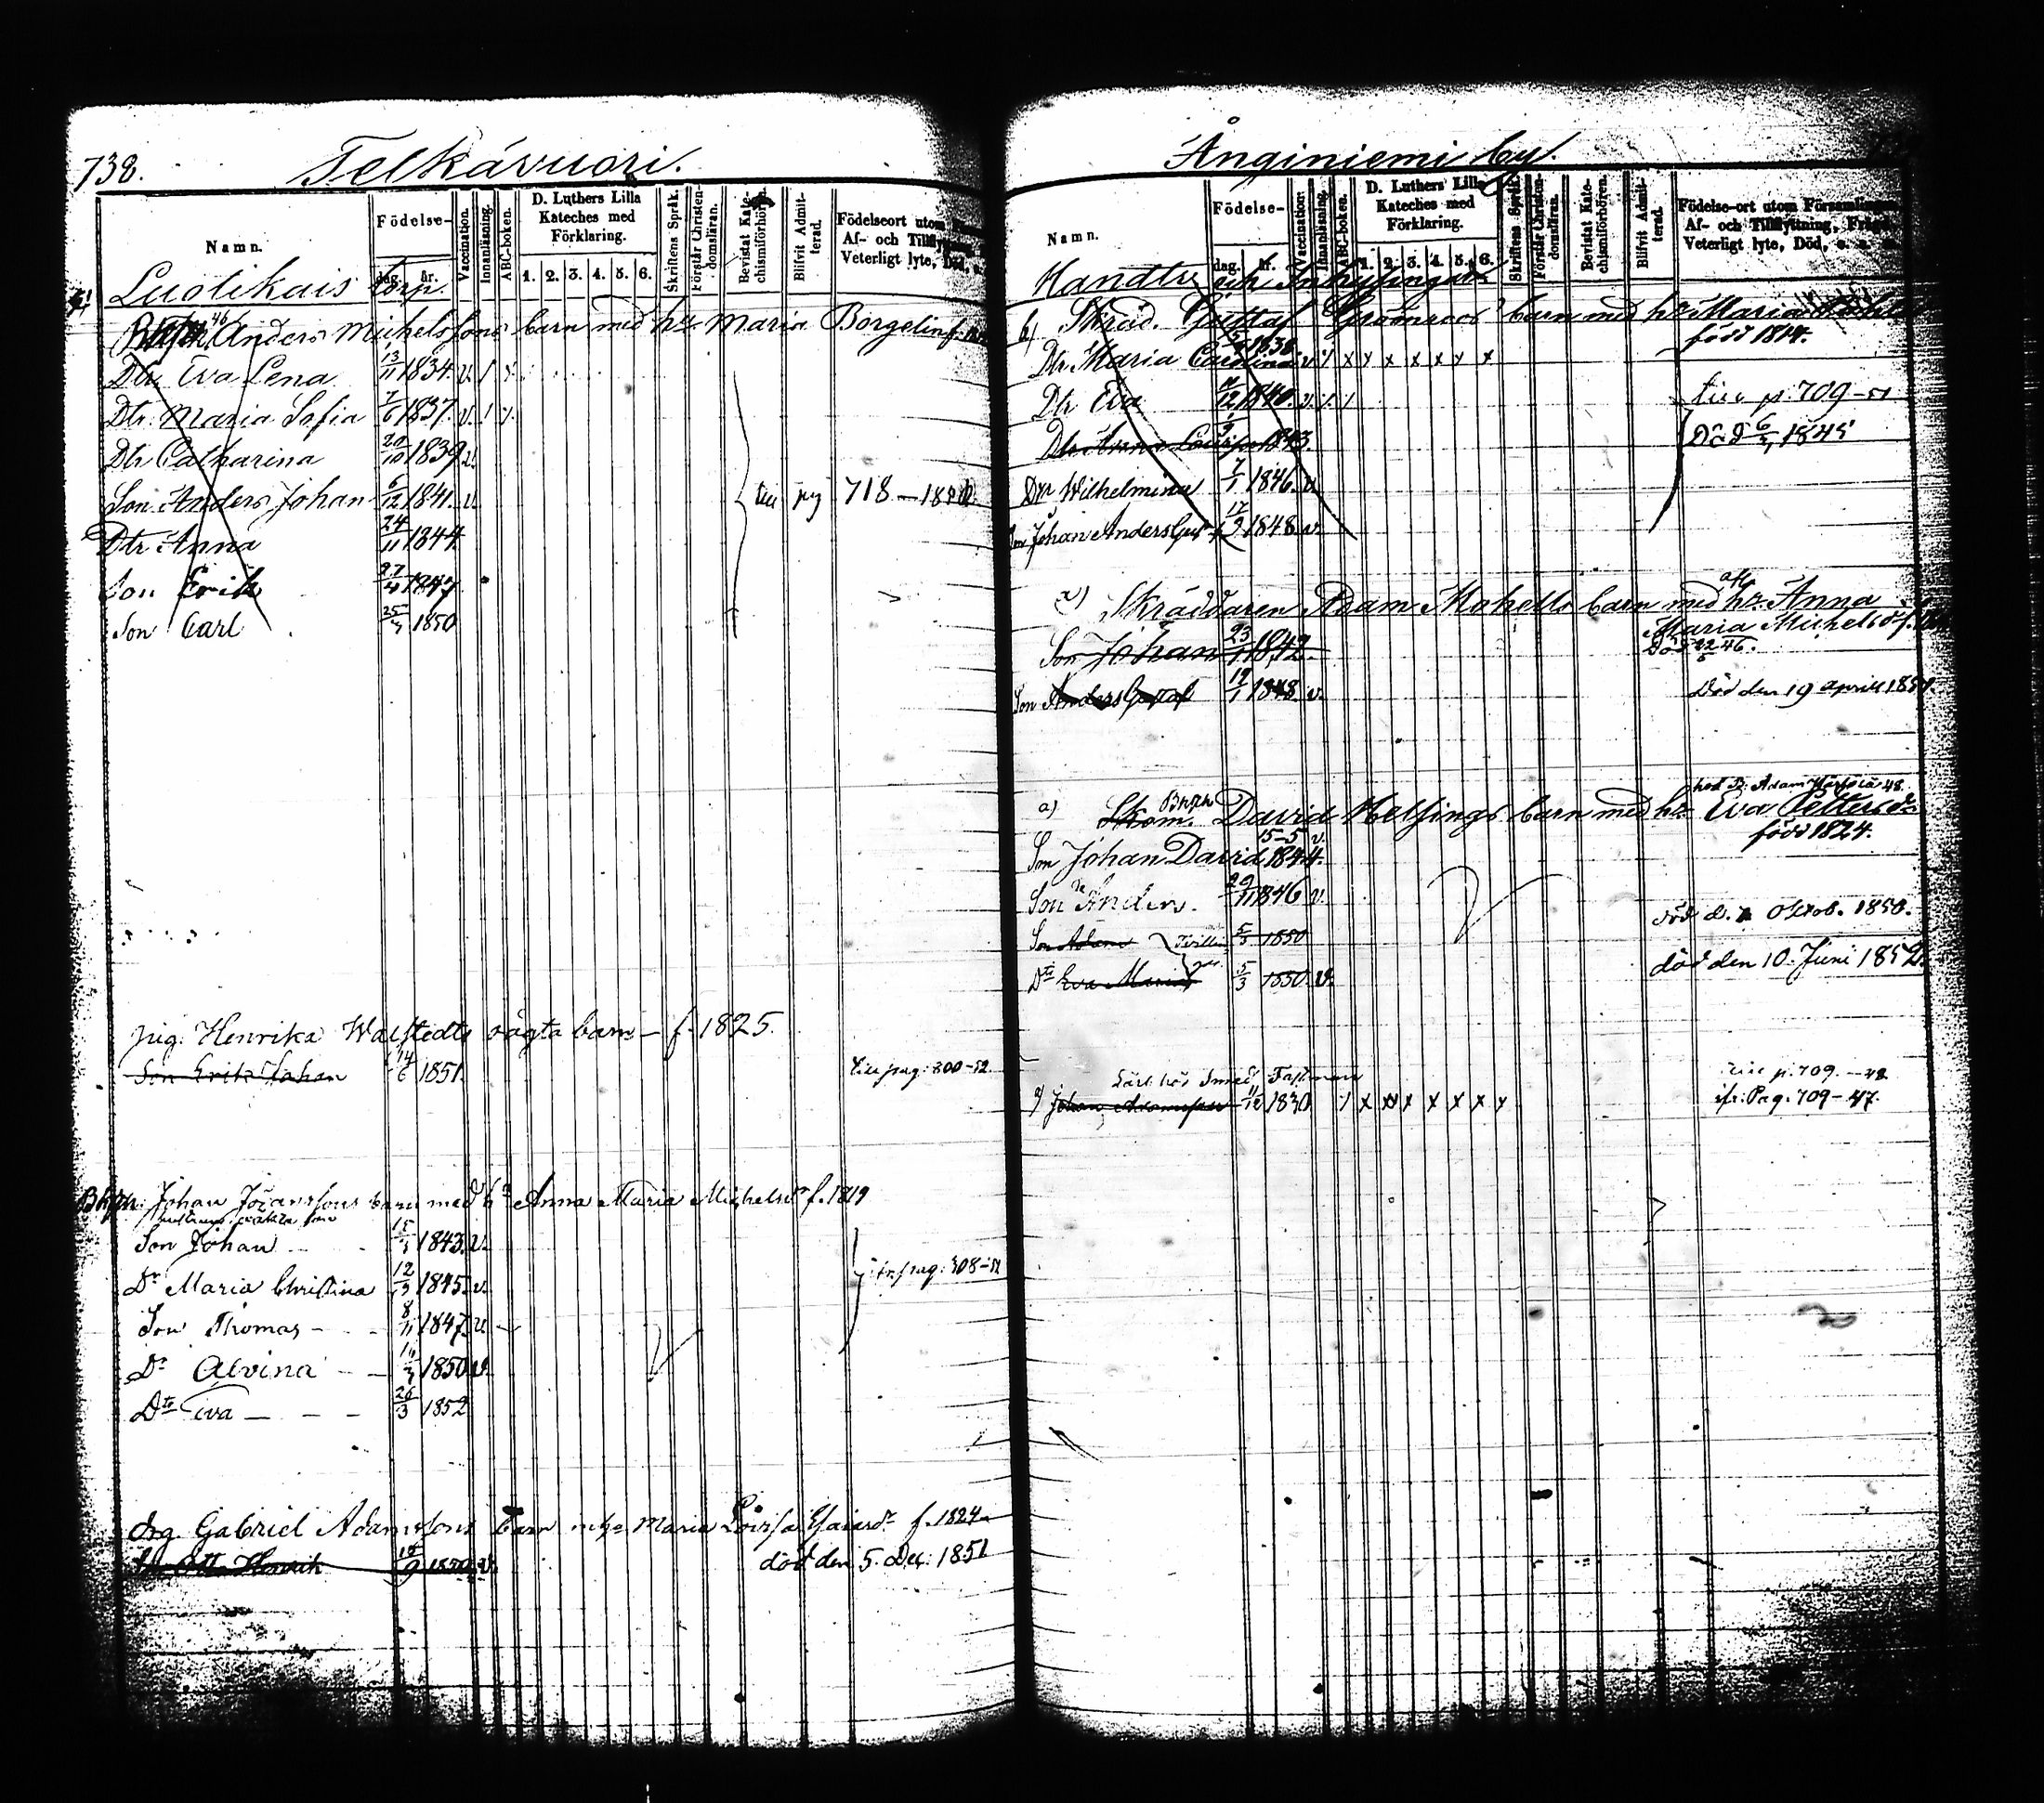 738.
Telkävuori.
Namn.
Födelse-
dag. år.
Vaccination.
Innanläsning.
ABC-boken.
D. Luthers Lilla Kateches med Förklaring.
1. 2. 3. 4. 5. 6.
Skriftens Språk.
Förstår Christendomsläran.
Bevistat Katechismiförhören.
Blifvit Admitterad.
Födelseort utom
Af- och
Veterligt lyte, Död,
Luotikais torp.
46 Anders Michelssons barn med h: Maria Borgelin f.
Dtr Eva Lena 13/11 1834. v. 1
Dtr. Maria Sofia 7/6 1837. v. 1
Dtr Catharina 20/10 1839 v.
Son Anders Johan 6/12 1841. v. till pag 718 –
Dtr Anna 24/11 1844
Son Erik 27/4 1847
Son Carl 25/3 1850
pig. Henrika Walstedts oägta barn – f. 1825.
Son Erik Johan 14/6 1851. till pag: 800–52
Bhsm. Johan Johanssons barn med h: Anna Maria Michelsdr f. 1819
Son Johan 1843. v.
Dr Maria Christina 12/9 1845. v. pag: 308–52
Son Thomas – 8/11 1847. v.
Dr Alvina – – 1850. v.
Dtr Eva – – – 26/3 1852
drg. Gabriel Adamssons barn m. h: Maria Lovisa f. 1824
Otto Henrik 1850. v. död den 5. Dec: 1851
Ånginiemi by.
Namn.
Födelse-
dag. år.
Vaccination.
Innanläsning.
ABC-boken.
D. Luthers Lilla Kateches med Förklaring.
1. 2. 3. 4. 5. 6.
Skriftens Språk.
Förstår Christendomsläran.
Bevistat Katechismiförhören.
Blifvit Admitterad.
Födelse-ort utom Församlingen
Af- och Tillflyttning, Frägd,
Veterligt lyte, Död,
Handtv. och Inhysingar
b) Skräd. Gustaf Grönroos barn med h: Maria
född 1814.
Dtr Maria Carolina 1838 v. 1 x x x x x x x
Dtr Eva 1840. v. 1. 1 till p. 709–51
Dtr Anna Lovisa 1843. Död 1845
Dtr Wilhelmina 7/1 1846. v.
Son Johan Anders Gust 1848. v.
a) Skräddaren Adam Mohells barn med afl. h: Anna
Maria Michelsdr f.
Son Johan 23/11 1842. Död 22/5 46.
Son Anders Gustaf 12/1 1848. v. Död den 19 aprill
a) Skom. Bhsm David Helsings barn med h: Eva Pettersdr
född 1824.
Son Johan David 15–5 1844. v.
Son Anders. 29/11 1846 v.
Son Adam Tvilling 5/3 1850 död d. Oktob. 1850.
Dtr Eva Maria 5/3 1850. v. död den 10. Juni 1852.
Lärl. hos Smed Fastman till p. 709. –48
Johan Adamsson 1830 1 x x x x x x x ifr: Pag. 709–47.